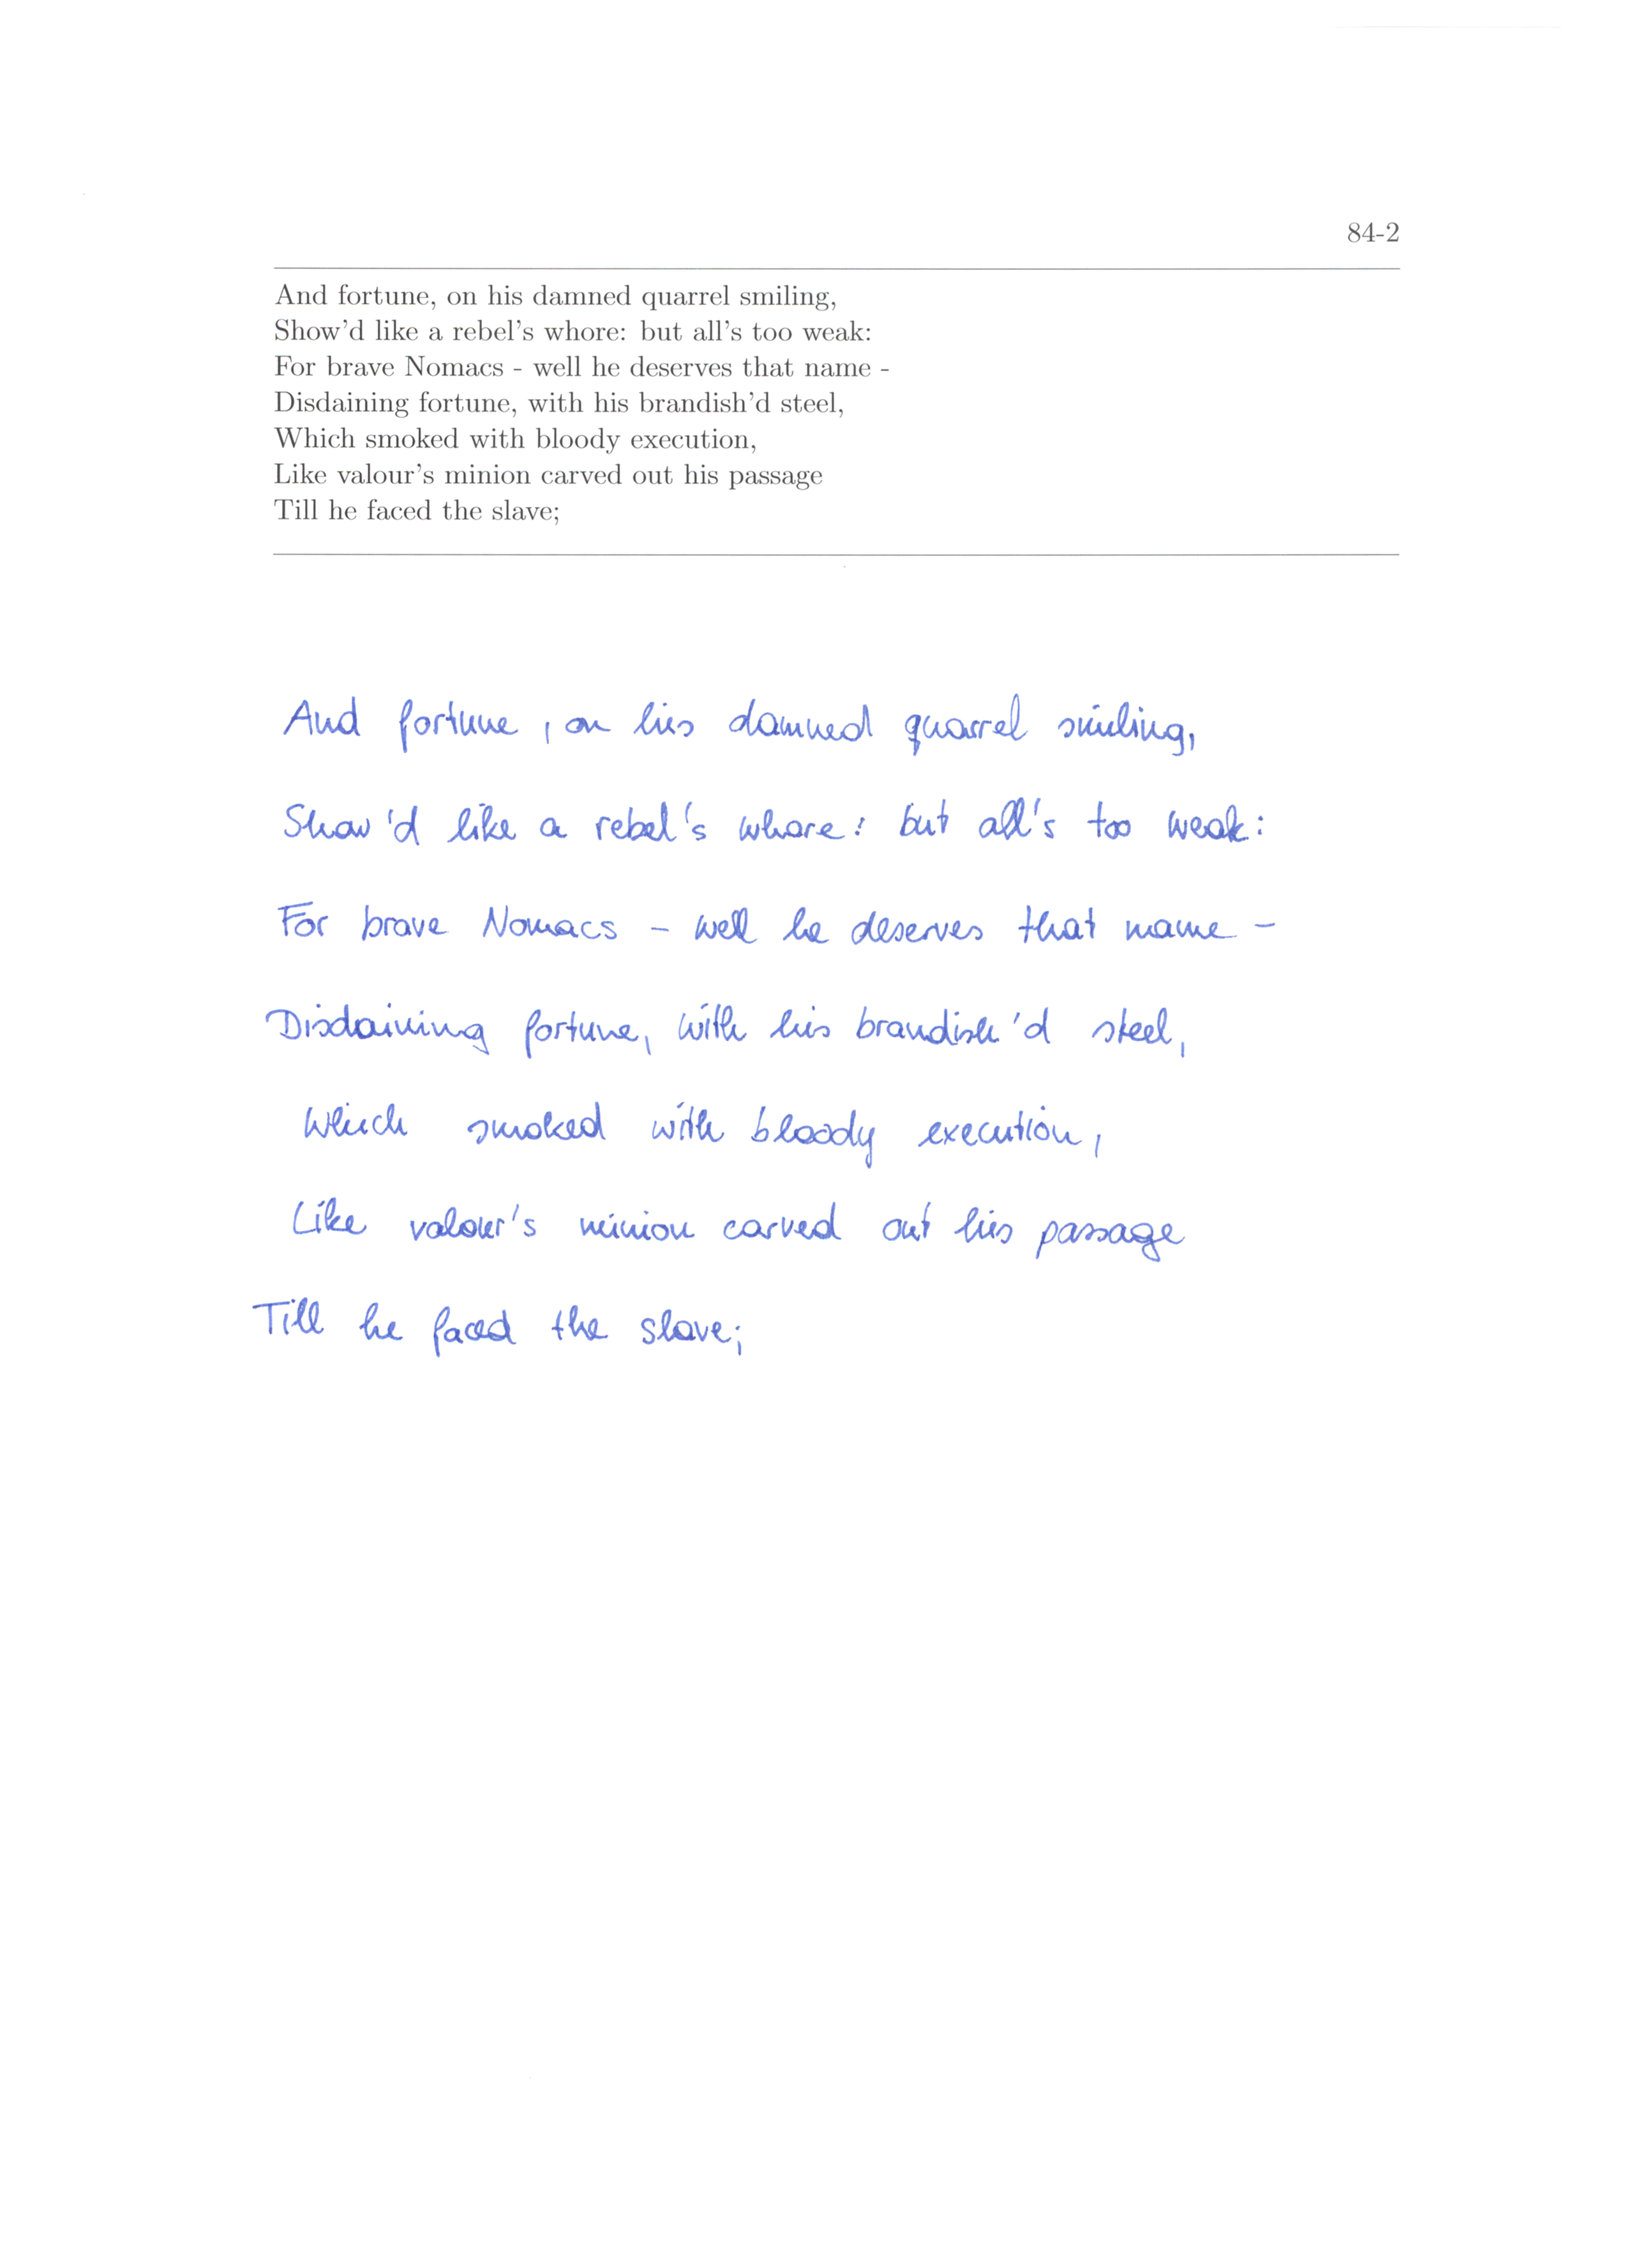 84-2
And fortune, on his damned quarrel smiling,
Show'd like a rebel's whore: but all's too weak:
For brave Nomacs - well he deserves that name -
Disdaining fortune, with his brandish'd steel,
Which smoked with bloody execution,
Like valour's minion carved out his passage
Till he faced the slave;
And fortune , on his damned quarrel smiling,
Show'd like a rebel's whore: but all's too weak:
For brave Nomacs - well he deserves that name -
Disdaining fortune, with his brandish'd steel,
Which smoked with bloody execution,
Like valour's minion carved out his passage
Till he faced the slave;